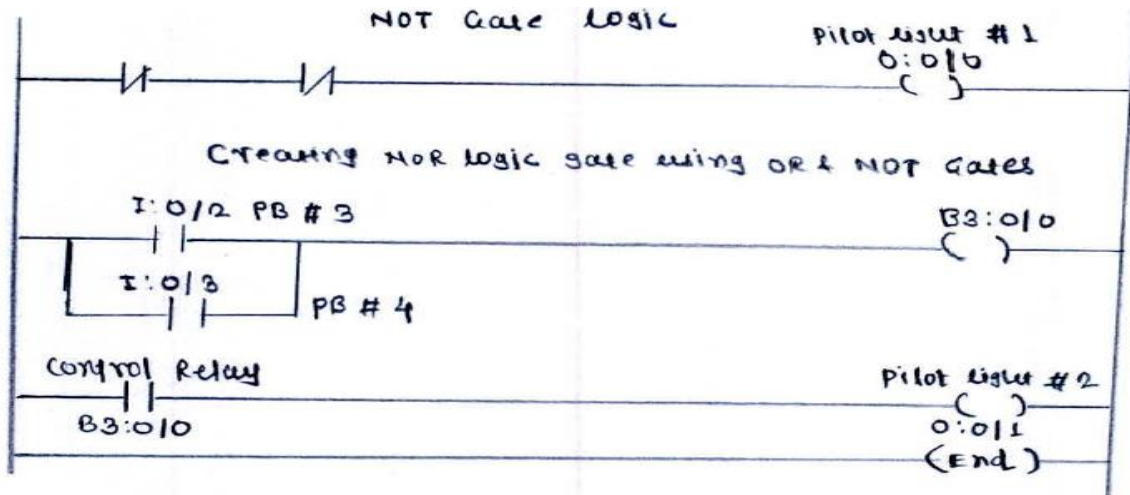 NOT Gate Logic
Pilot Light # 1
O:0/0
Creating NOR logic gate using OR & NOT Gates
I:0/2 PB # 3
B3:0/0
I:0/3
PB # 4
Control Relay
Pilot Light # 2
B3:0/0
O:0/1
(End)